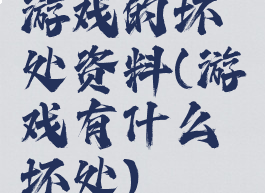 游戏的坏
处资料(游
戏有什么
坏处)